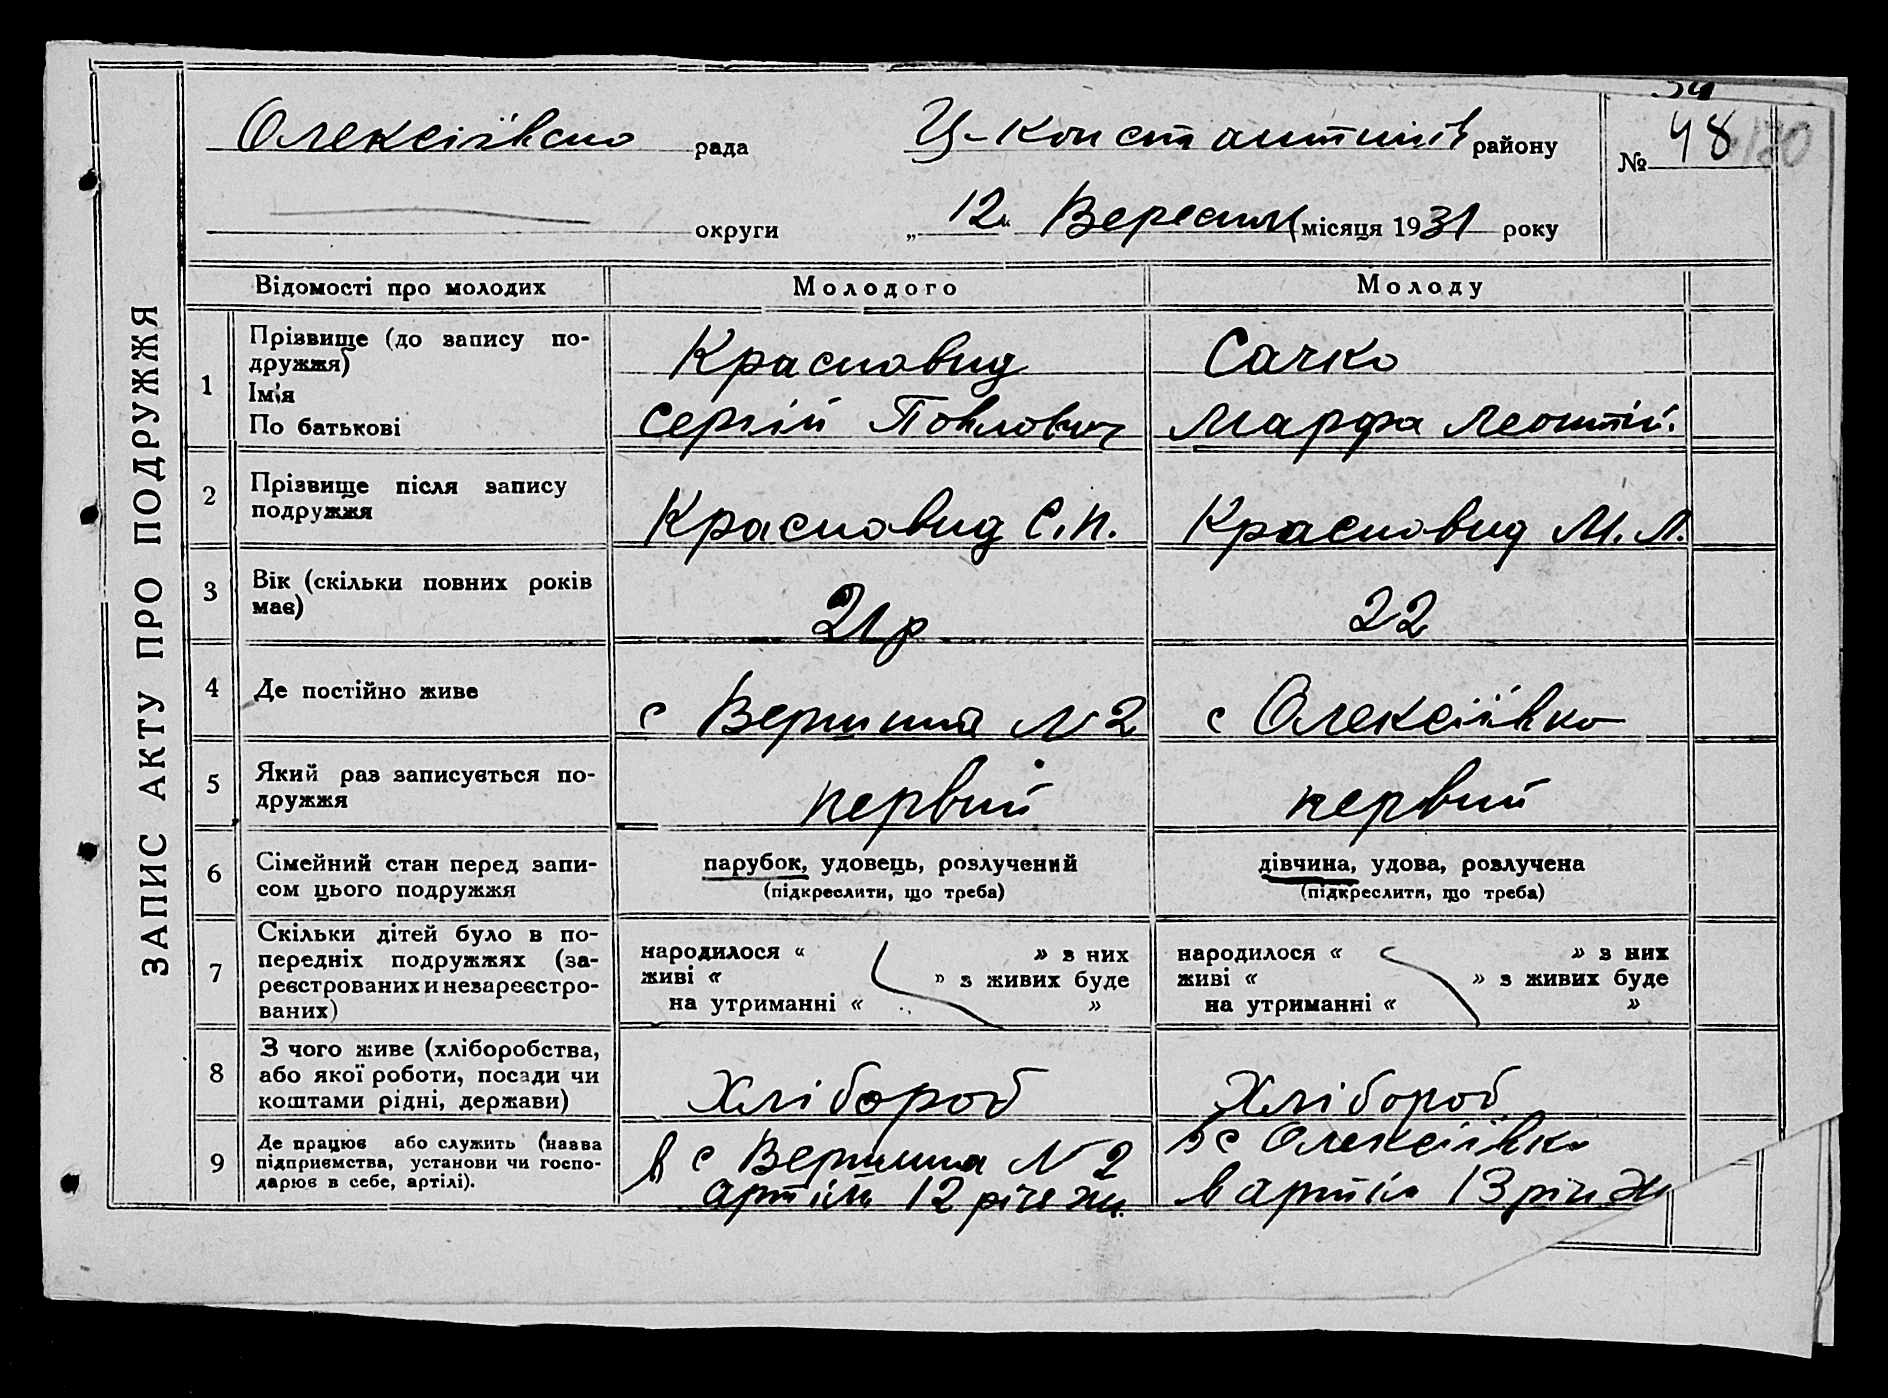 ЗАПИС АКТУ ПРО ПОДРУЖЖЯ
Олексіївсько рада
Ц-Константинів району
№ 48
округи
„12“ Вересня місяця 1931 року
Відомості про молодих
Молодого
Молоду
1
Прізвище (до запису по-
дружжя)
Ім'я
По батькові
Красновид
Сергій Повлович
Сачко
Марфа Леонтій.
2
Прізвище після запису
подружжя
Красновид С.П.
Красновид М.Л.
3
Вік (скільки повних років
має)
21р
22
4
Де постійно живе
с Вершина N 2
с Олексіївко
5
Який раз записується по-
дружжя
первий
первий
6
Сімейний стан перед запи-
сом цього подружжя
парубок, удовець, розлучений
(підкреслити, що треба)
дівчина, удова, розлучена
(підкреслити, що треба)
7
Скільки дітей було в по-
передніх подружжях (за-
реєстрованих и незареєстро-
ваних)
народилося “ ” з них
живі “ ” з живих буде
на утриманні “ ”
народилося “ ” з них
живі “ ” з живих буде
на утриманні “ ”
8
З чого живе (хліборобства,
або якої роботи, посади чи
коштами рідні, держави)
Хлібороб
Хлібороб
9
Де працює або служить (назва
підприємства, установи чи госпо-
дарює в себе, артілі).
в с Вершина N 2
артіль 12 річ
с Олексіївко
в артіль 13 річ